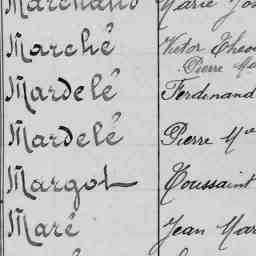 Marchand Marie Jos
Marché Victor Theo
Pierre Ma
Mardelé Ferdinand
Mardelé Pierre Mie
Margot Toussaint
Maré Jean Mar